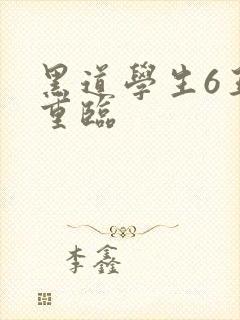 黑道學生6王
重臨
李鑫